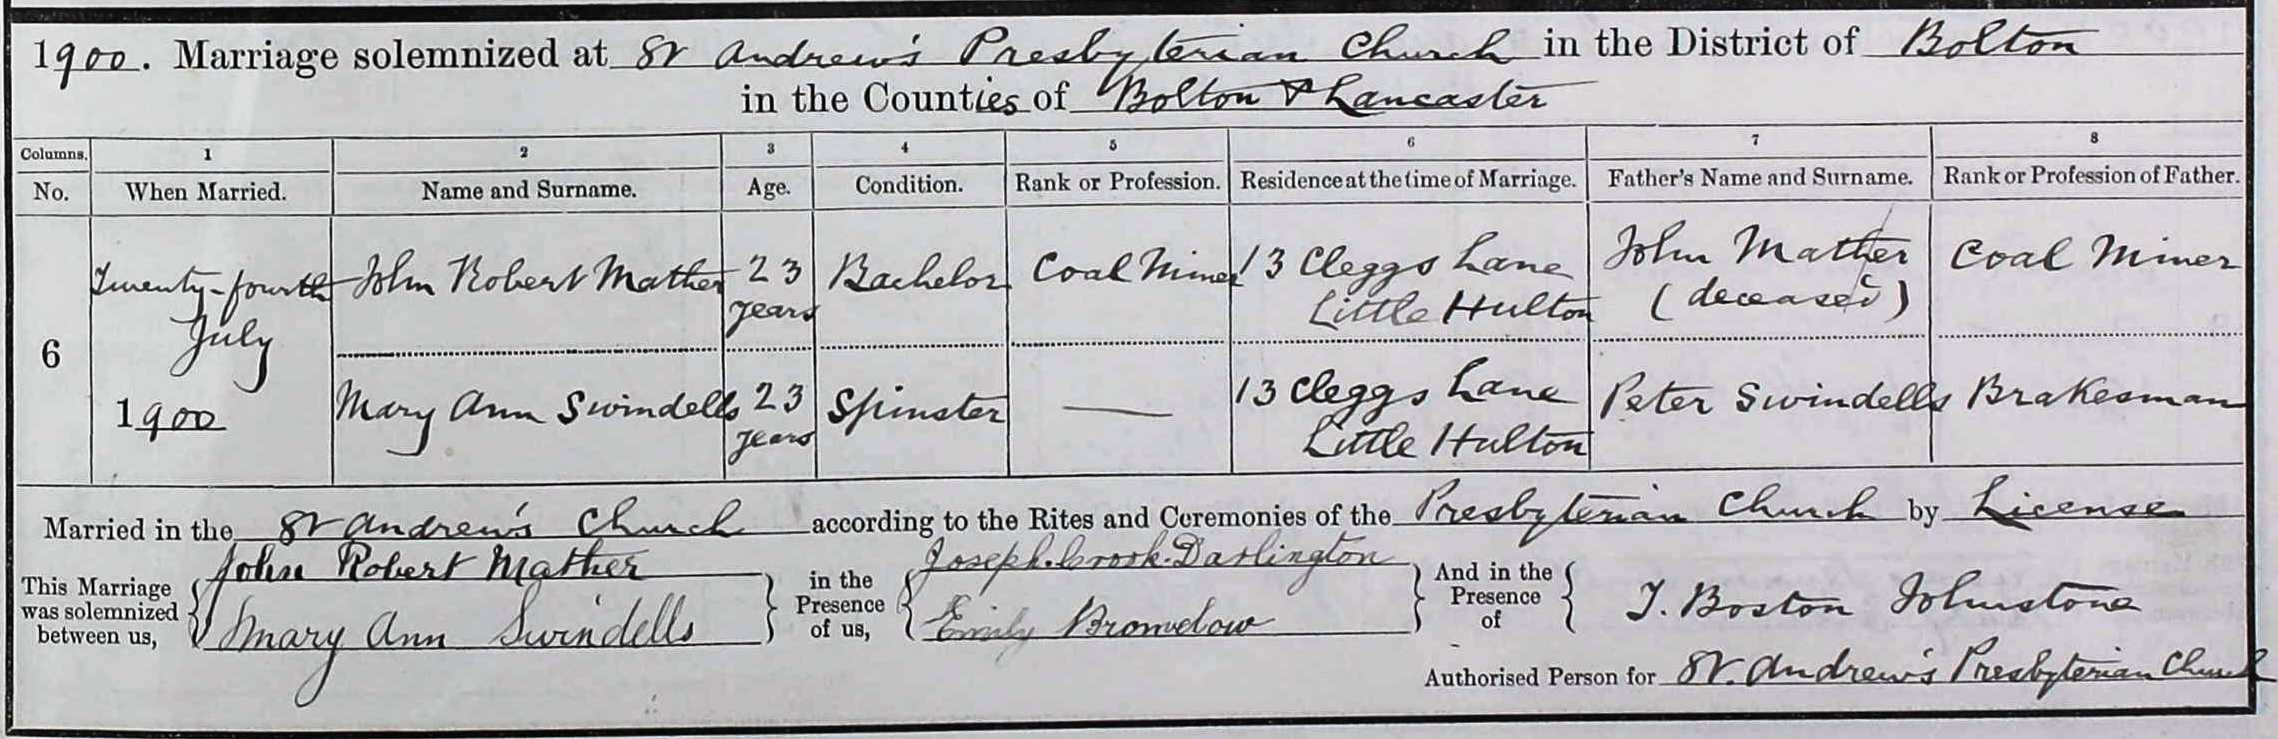 1900. Marriage solemnized at St Andrew's Presbyterian Church in the District of Bolton
in the Counties of Bolton & Lancaster
Columns. 1 2 3 4 5 6 7 8
No. When Married. Name and Surname. Age. Condition. Rank or Profession. Residence at the time of Marriage. Father's Name and Surname. Rank or Profession of Father.
6 Twenty-fourth July 1900
John Robert Mather 23 years Bachelor Coal Miner 13 Cleggs Lane Little Hulton John Mather (deceased) Coal Miner
Mary Ann Swindells 23 years Spinster — 13 Cleggs Lane Little Hulton Peter Swindells Brakesman
Married in the St Andrew's Church according to the Rites and Ceremonies of the Presbyterian Church by License
This Marriage was solemnized between us, John Robert Mather Mary Ann Swindells
in the Presence of us, Joseph. Crook. Darlington Emily Bromelow
And in the Presence of T. Boston Johnstone
Authorised Person for St. Andrew's Presbyterian Church